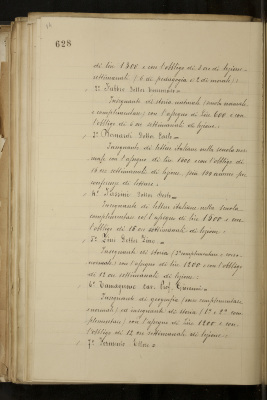 628
di lire 1800 e con l'obbligo di 8 ore di lezione
settimanali (6 di pedagogia e 2 di morale).
2° Dottor
Insegnante di storia naturale (scuola normale
e complementare) con l'assegno di lire 600 e con
l'obbligo di 6 ore settimanali di lezione.
3° Bernardi Dottor Carlo.
Insegnante di lettere italiane nella scuola nor-
male con l'assegno di lire 1800 e con l'obbligo di
ore settimanali di lezione, più 100 annue per
conferenze di lettere.
4° Dottor
Insegnante di lettere italiane nella scuola
complementare coll'assegno di lire 1500 e con
l'obbligo di 15 ore settimanali di lezione.
5° Dottor
Insegnante di storia (complementare e
normale) con l'assegno di lire 1200 e con l'obbligo
di 12 ore settimanali di lezione.
6° cav. Prof.
Insegnante di geografia (corso complementare
normale) ed insegnante di storia (1ª e 2ª com-
plementare) con l'assegno di lire 1200 e con
l'obbligo di 12 ore settimanali di lezione.
7°